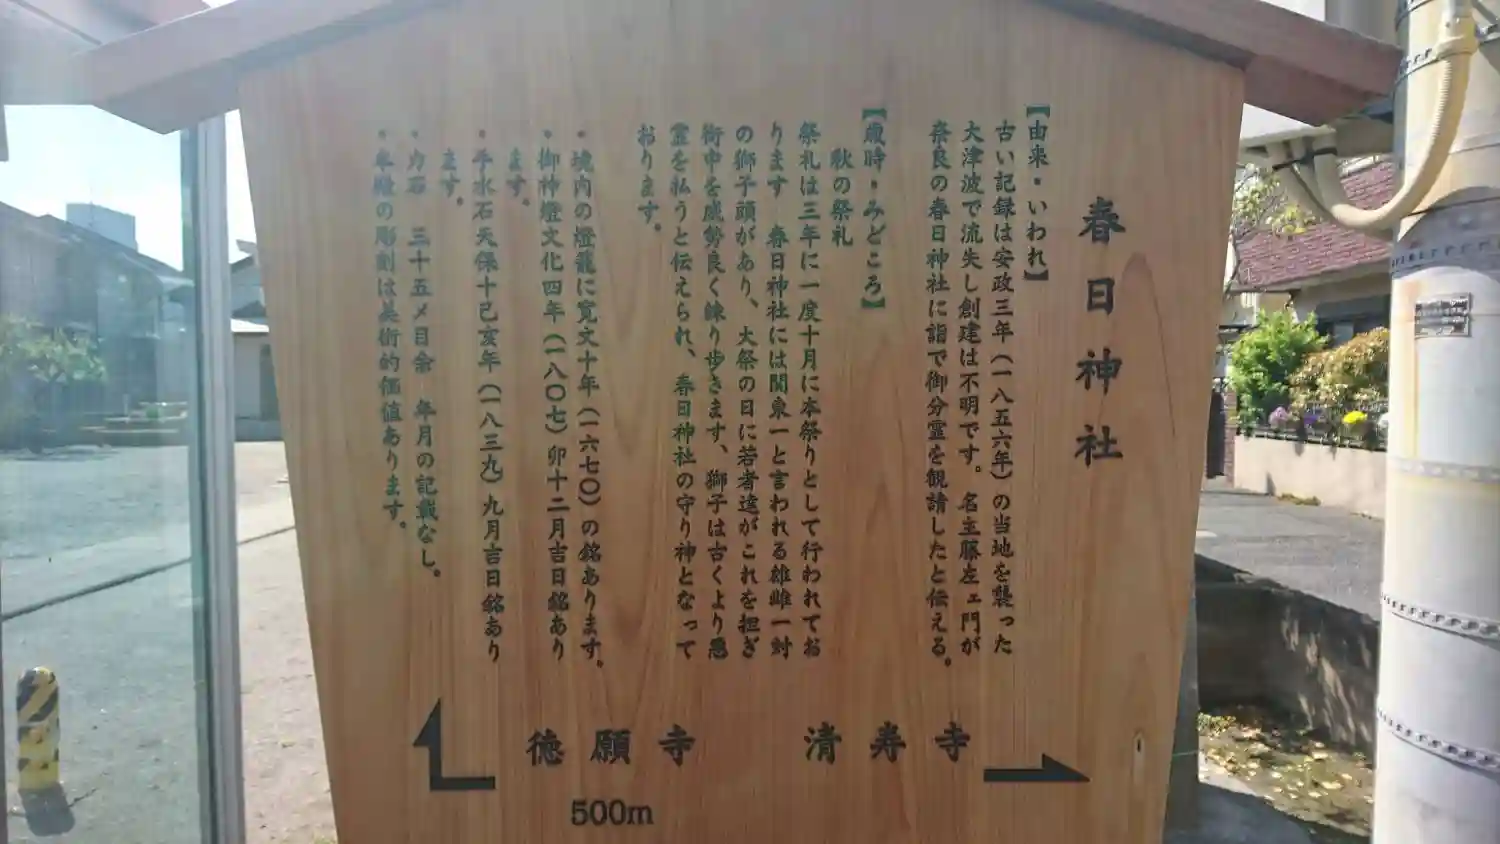 春日神社
【由来・いわれ】
古い記録は安政三年(一八五六年)の当地を襲った
大津波で流失し創建は不明です。名主藤左ェ門が
奈良の春日神社に詣で御分霊を観請したと伝える。
【歳時・みどころ】
秋の祭礼
祭礼は三年に一度十月に本祭りとして行われてお
ります 春日神社には関東一と言われる雄雌一対
の獅子頭があり、大祭の日に若者達がこれを担ぎ
街中を威勢良く練り歩きます、獅子は古くより悪
霊を払うと伝えられ、春日神社の守り神となって
おります。
・境内の燈籠に寛文十年(一六七〇)の銘あります。
・御神燈文化四年(一八〇七)卯十二月吉日銘あり
ます。
・手水石天保十己亥年(一八三九)九月吉日銘あり
ます。
・力石 三十五メ目余 年月の記載なし。
・本殿の彫刻は美術的価値あります。
清寿寺
徳願寺
500m